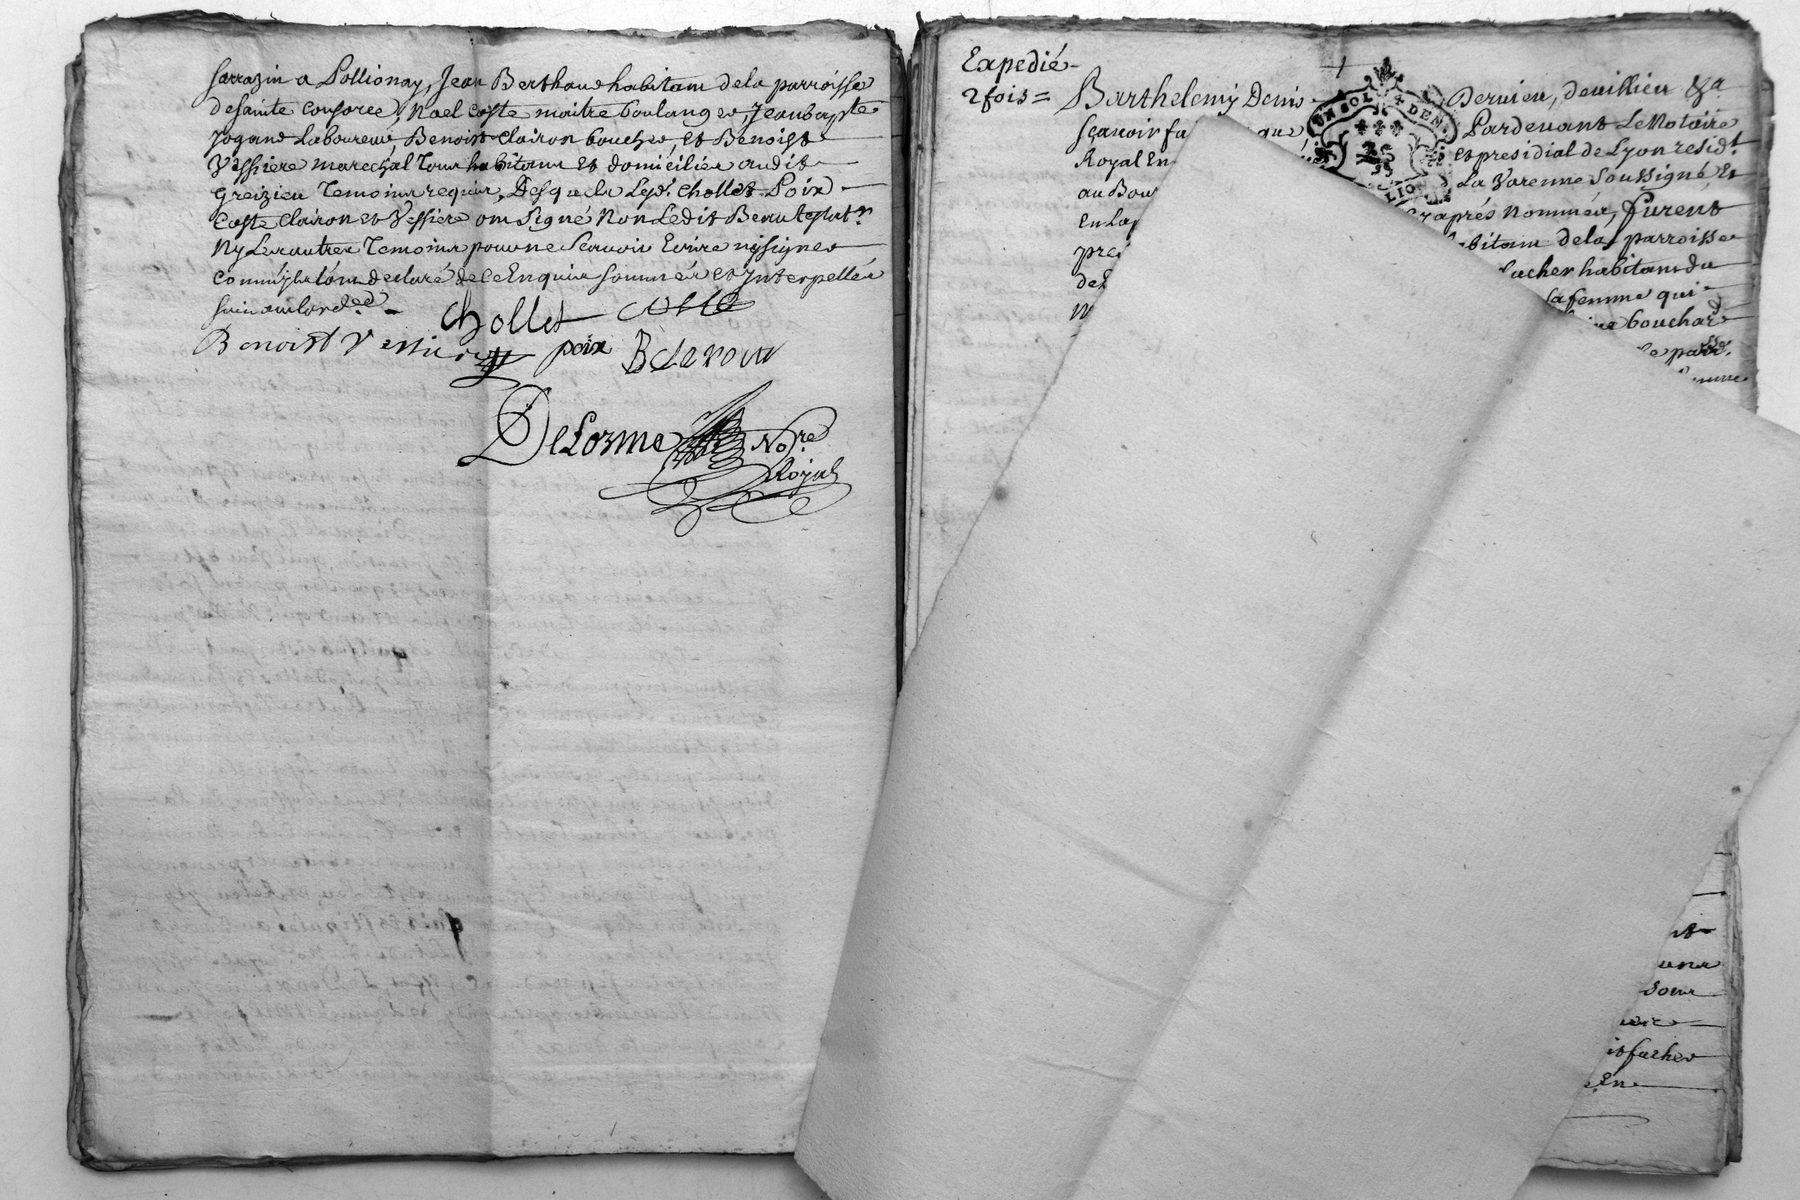 Sarrazin a Pollionay, Jean Berthaud habitant dela parroisse
de sainte Consorce, Noel Coste maitre boulanger, Jean baptte
Jogand Laboureur, Benoist Clairon boucher, et Benoist
Vessiere marechal tous habitans et domiciliés audit
Greizieu Temoins requis, Desquels Lesd. Chollet Poix
Coste Clairon et Vessiere ont Signé Non Ledit Testatr
Ny Les autres Temoins pour ne Scavoir Ecrire ny signer
Comme ils lont declaré de ce Enquis sommés et Interpellés
Suivant lord.ce
Chollet Coste
Benoist Vessiere poix B Cleron
DeLorme No.re
Royal
Expedié
2 fois =
Barthelemy Denis Dervieu, de villieu &a
Scavoir fa que Pardevant Le Notaire
Royal En et presidial de Lyon resid.t
au Bour La Varenne Soussigné, Et
En La cy aprés Nommés, furent
pre habitans dela parroisse
de facher habitans du
sa femme qui
bouchard
facher
En
UN SOL DEN
LIO